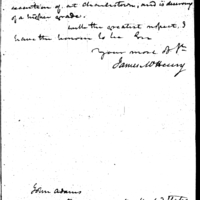 execution of, at Charlestown, and is deserving
of a higher grade.
with the greatest respect, I
have the honour to be Sir
Your most Ob St
James McHenry
John Adams